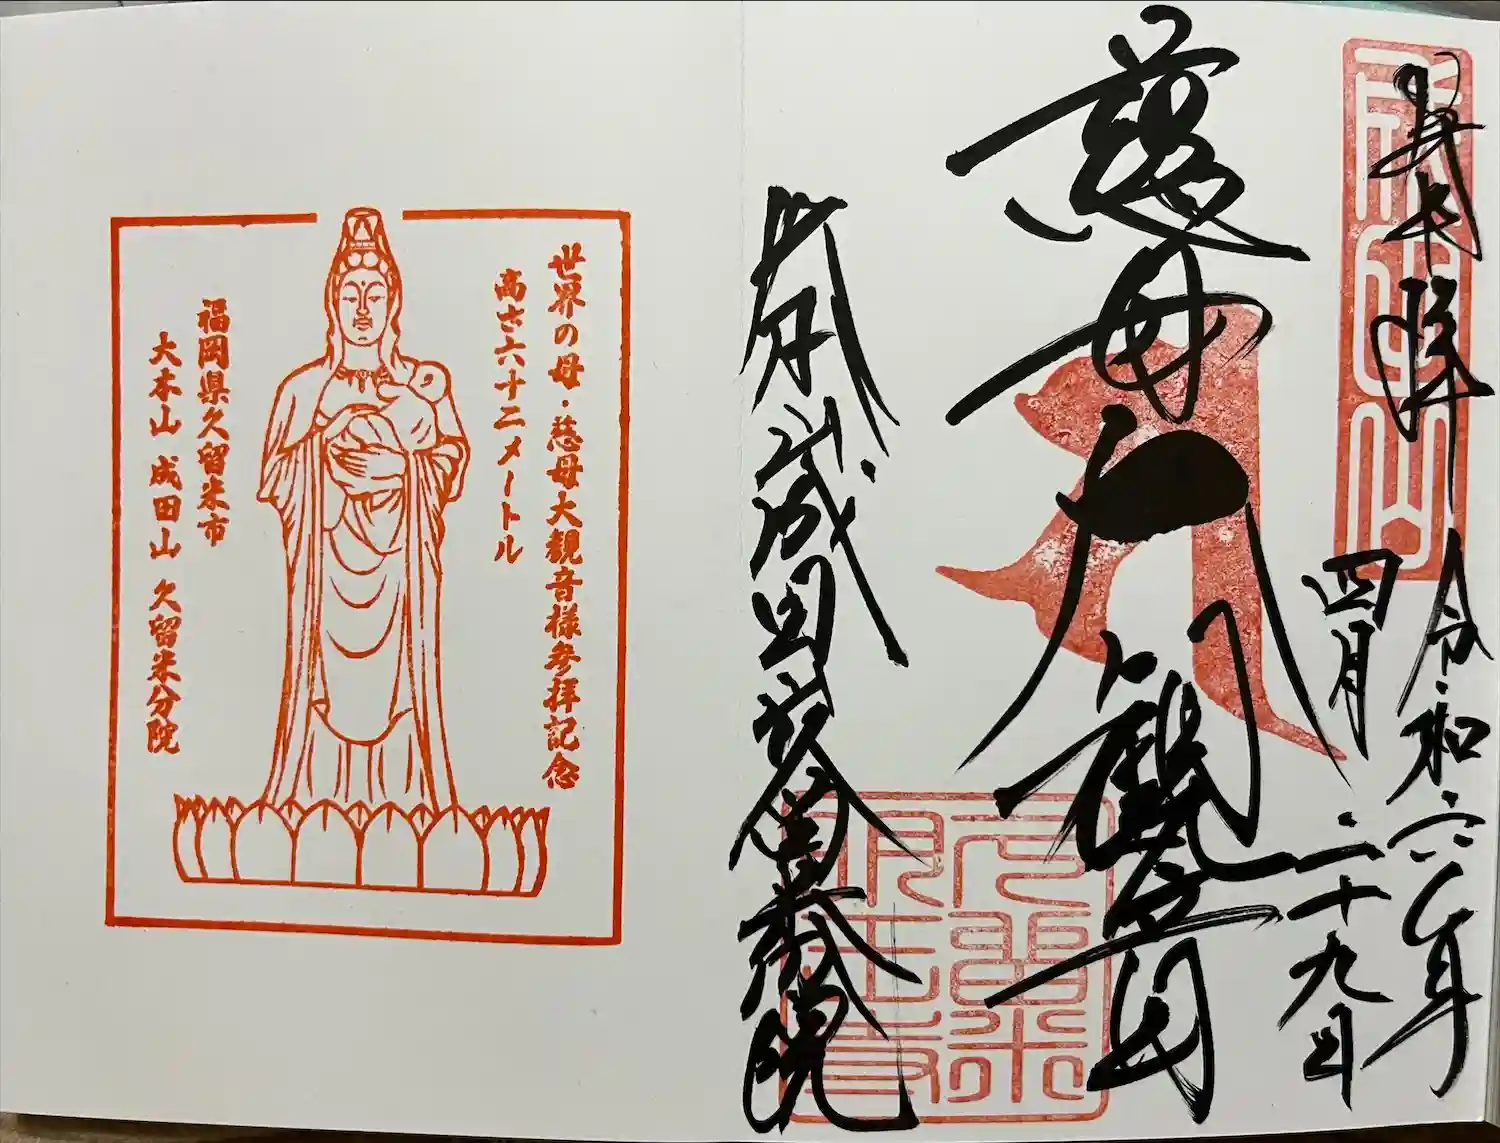 成田山
令和六年
四月二十九日
慈母大観音
大本山成田山久留米分院
世界の母・慈母大観音様参拝記念
高さ六十二メートル
福岡県久留米市
大本山 成田山 久留米分院